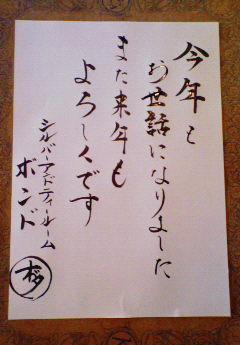 今年も
お世話になりました
また来年も
よろしくです
シルバーアドティールーム
ボンド